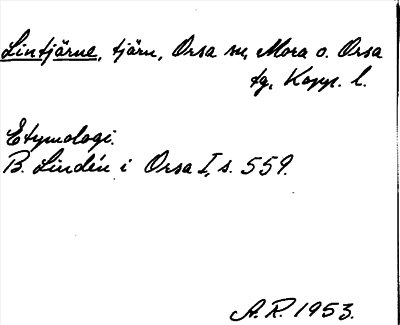 Lintjärne, tjärn, Orsa sn, Mora o. Orsa
tg, Kopp. l.
Etymologi.
B. Lindén i Orsa I, s. 559.
A.R. 1953.